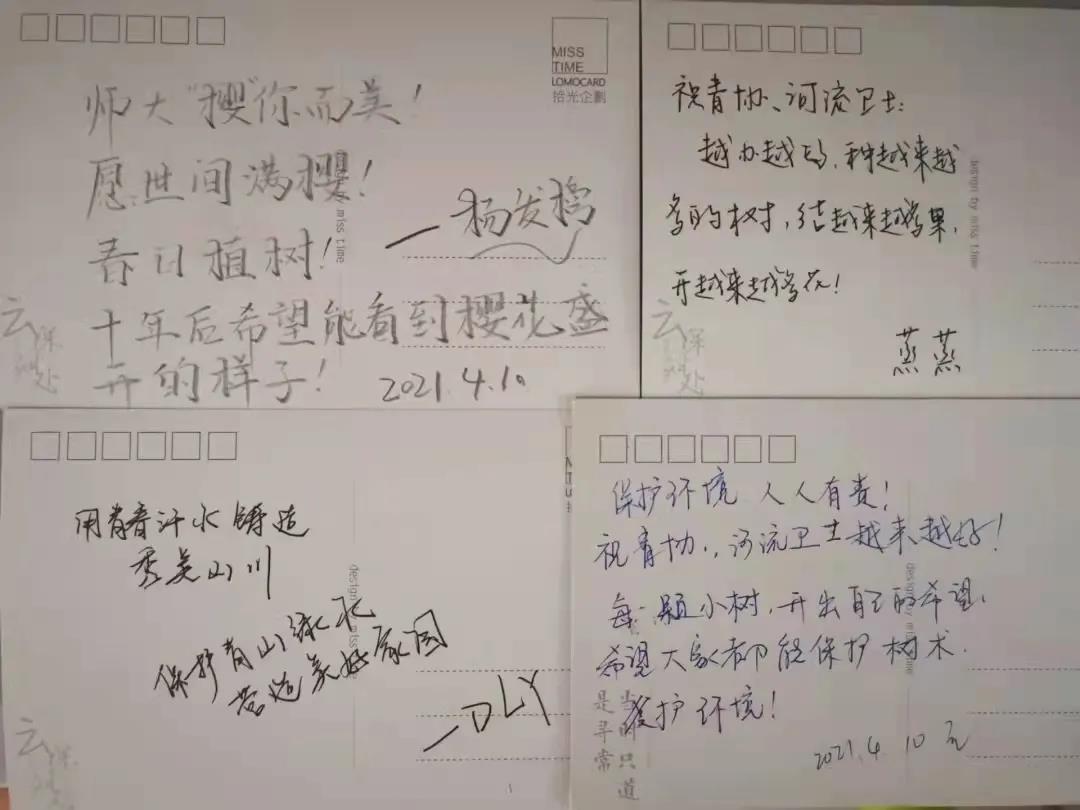 师大"樱"你而美！
愿世间满樱！
春日植树！
十年后希望能看到樱花盛
开的样子！
2021.4.10
MISS
TIME
LOMOCARD
拾光企劃
miss time
云深
处
祝青协、河流卫士：
越办越好，种越来越
多的树，结越来越多果，
开越来越多花！
design by miss time
云深
处
用青春汗水铸造
秀美山川
保护青山绿水
营造美好家园
—DLY
design by miss
云深
保护环境 人人有责！
祝青协、河流卫士越来越好！
每一颗小树，开出自己的希望。
希望大家都能保护树木，
爱护环境！
2021.4.10
design by miss time
当时只道
是寻常